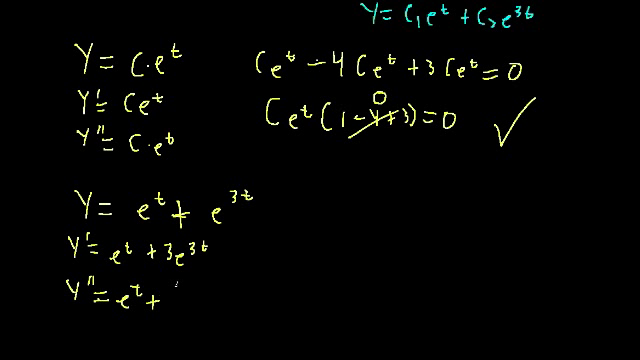 Y = C₁e^t + C₂e^3t
Y = C·e^t
Y' = Ce^t
Y" = C·e^t
Ce^t - 4Ce^t + 3Ce^t = 0
0
Ce^t(1-4+3) = 0 ✓
Y = e^t + e^3t
Y' = e^t + 3e^3t
Y" = e^t +